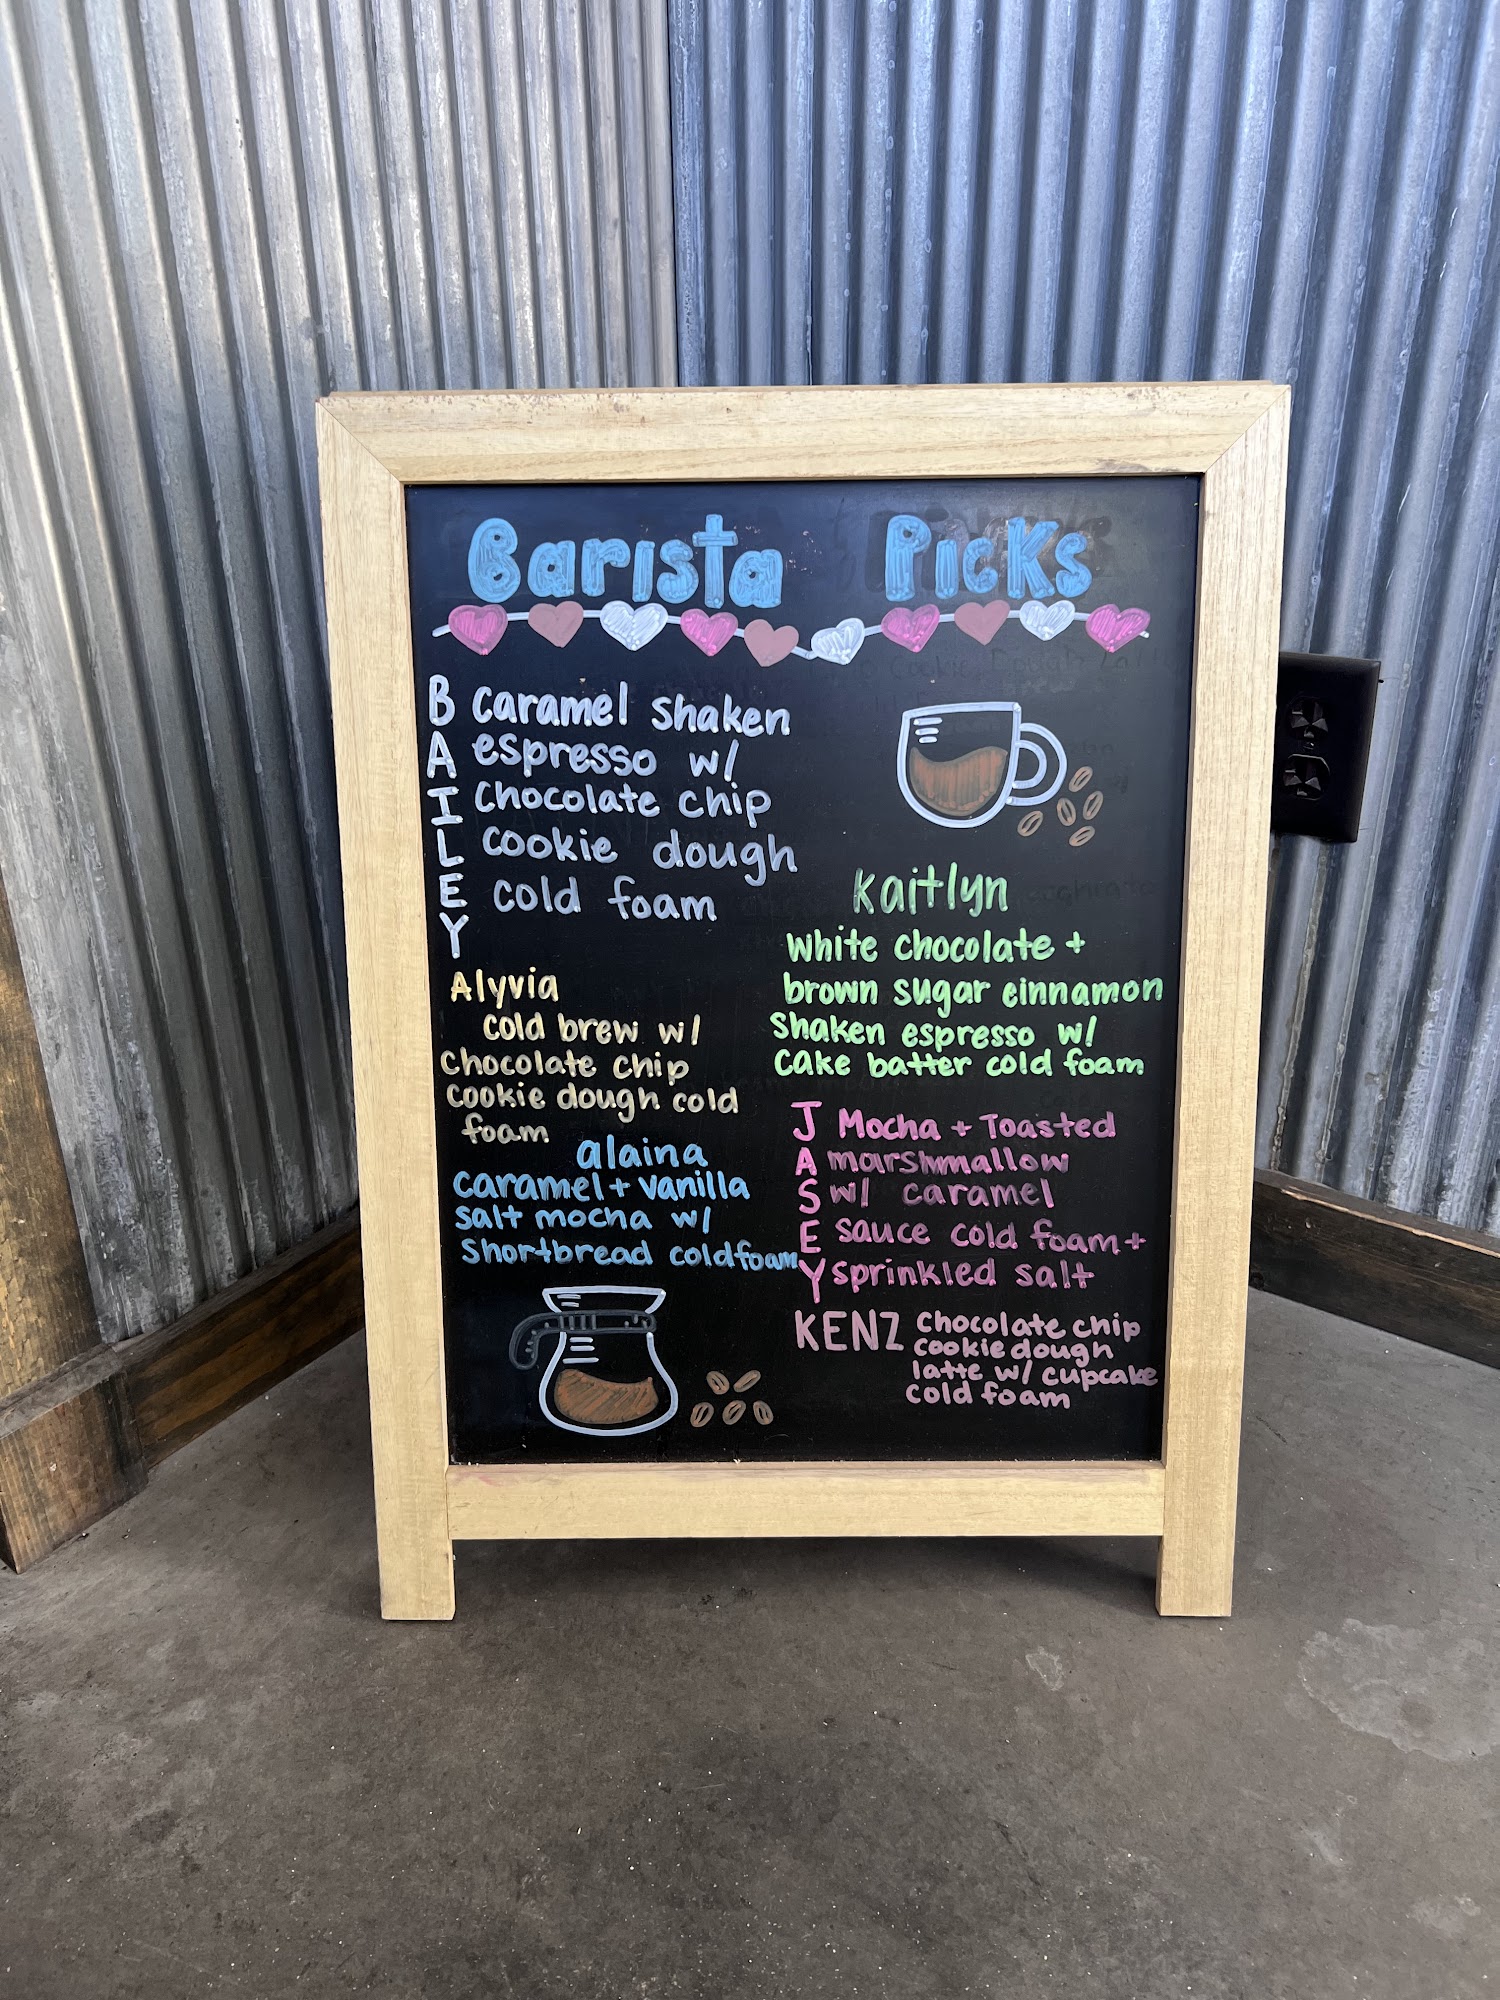 Barista Picks
BAILEY
caramel shaken
espresso w/
chocolate chip
cookie dough
cold foam
Alyvia
cold brew w/
chocolate chip
cookie dough cold
foam
alaina
caramel + vanilla
salt mocha w/
shortbread cold foam
Kaitlyn
white chocolate +
brown sugar cinnamon
shaken espresso w/
cake batter cold foam
JASEY
Mocha + Toasted
marshmallow
w/ caramel
sauce cold foam +
sprinkled salt
KENZ
chocolate chip
cookie dough
latte w/ cupcake
cold foam